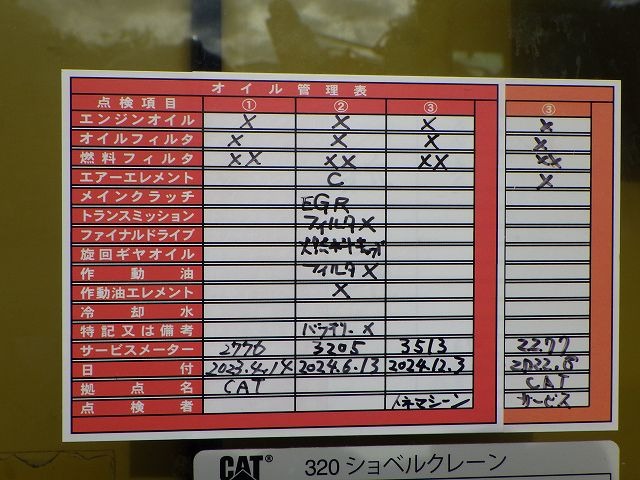 オイル管理表
点検項目 ① ② ③ ③
エンジンオイル × × × ×
オイルフィルタ × × × ×
燃料フィルタ ×× ×× ×× ××
エアーエレメント C ×
メインクラッチ EGR
トランスミッション フィルタ ×
ファイナルドライブ
旋回ギヤオイル
作動油 フィルタ ×
作動油エレメント ×
冷却水
特記又は備考 バッテリー ×
サービスメーター 2776 3205 3513 2277
日付 2023.4.14 2024.6.13 2024.12.3 2022.8
拠点名 CAT CAT
点検者 マシーン サービス
CAT® 320 ショベルクレーン